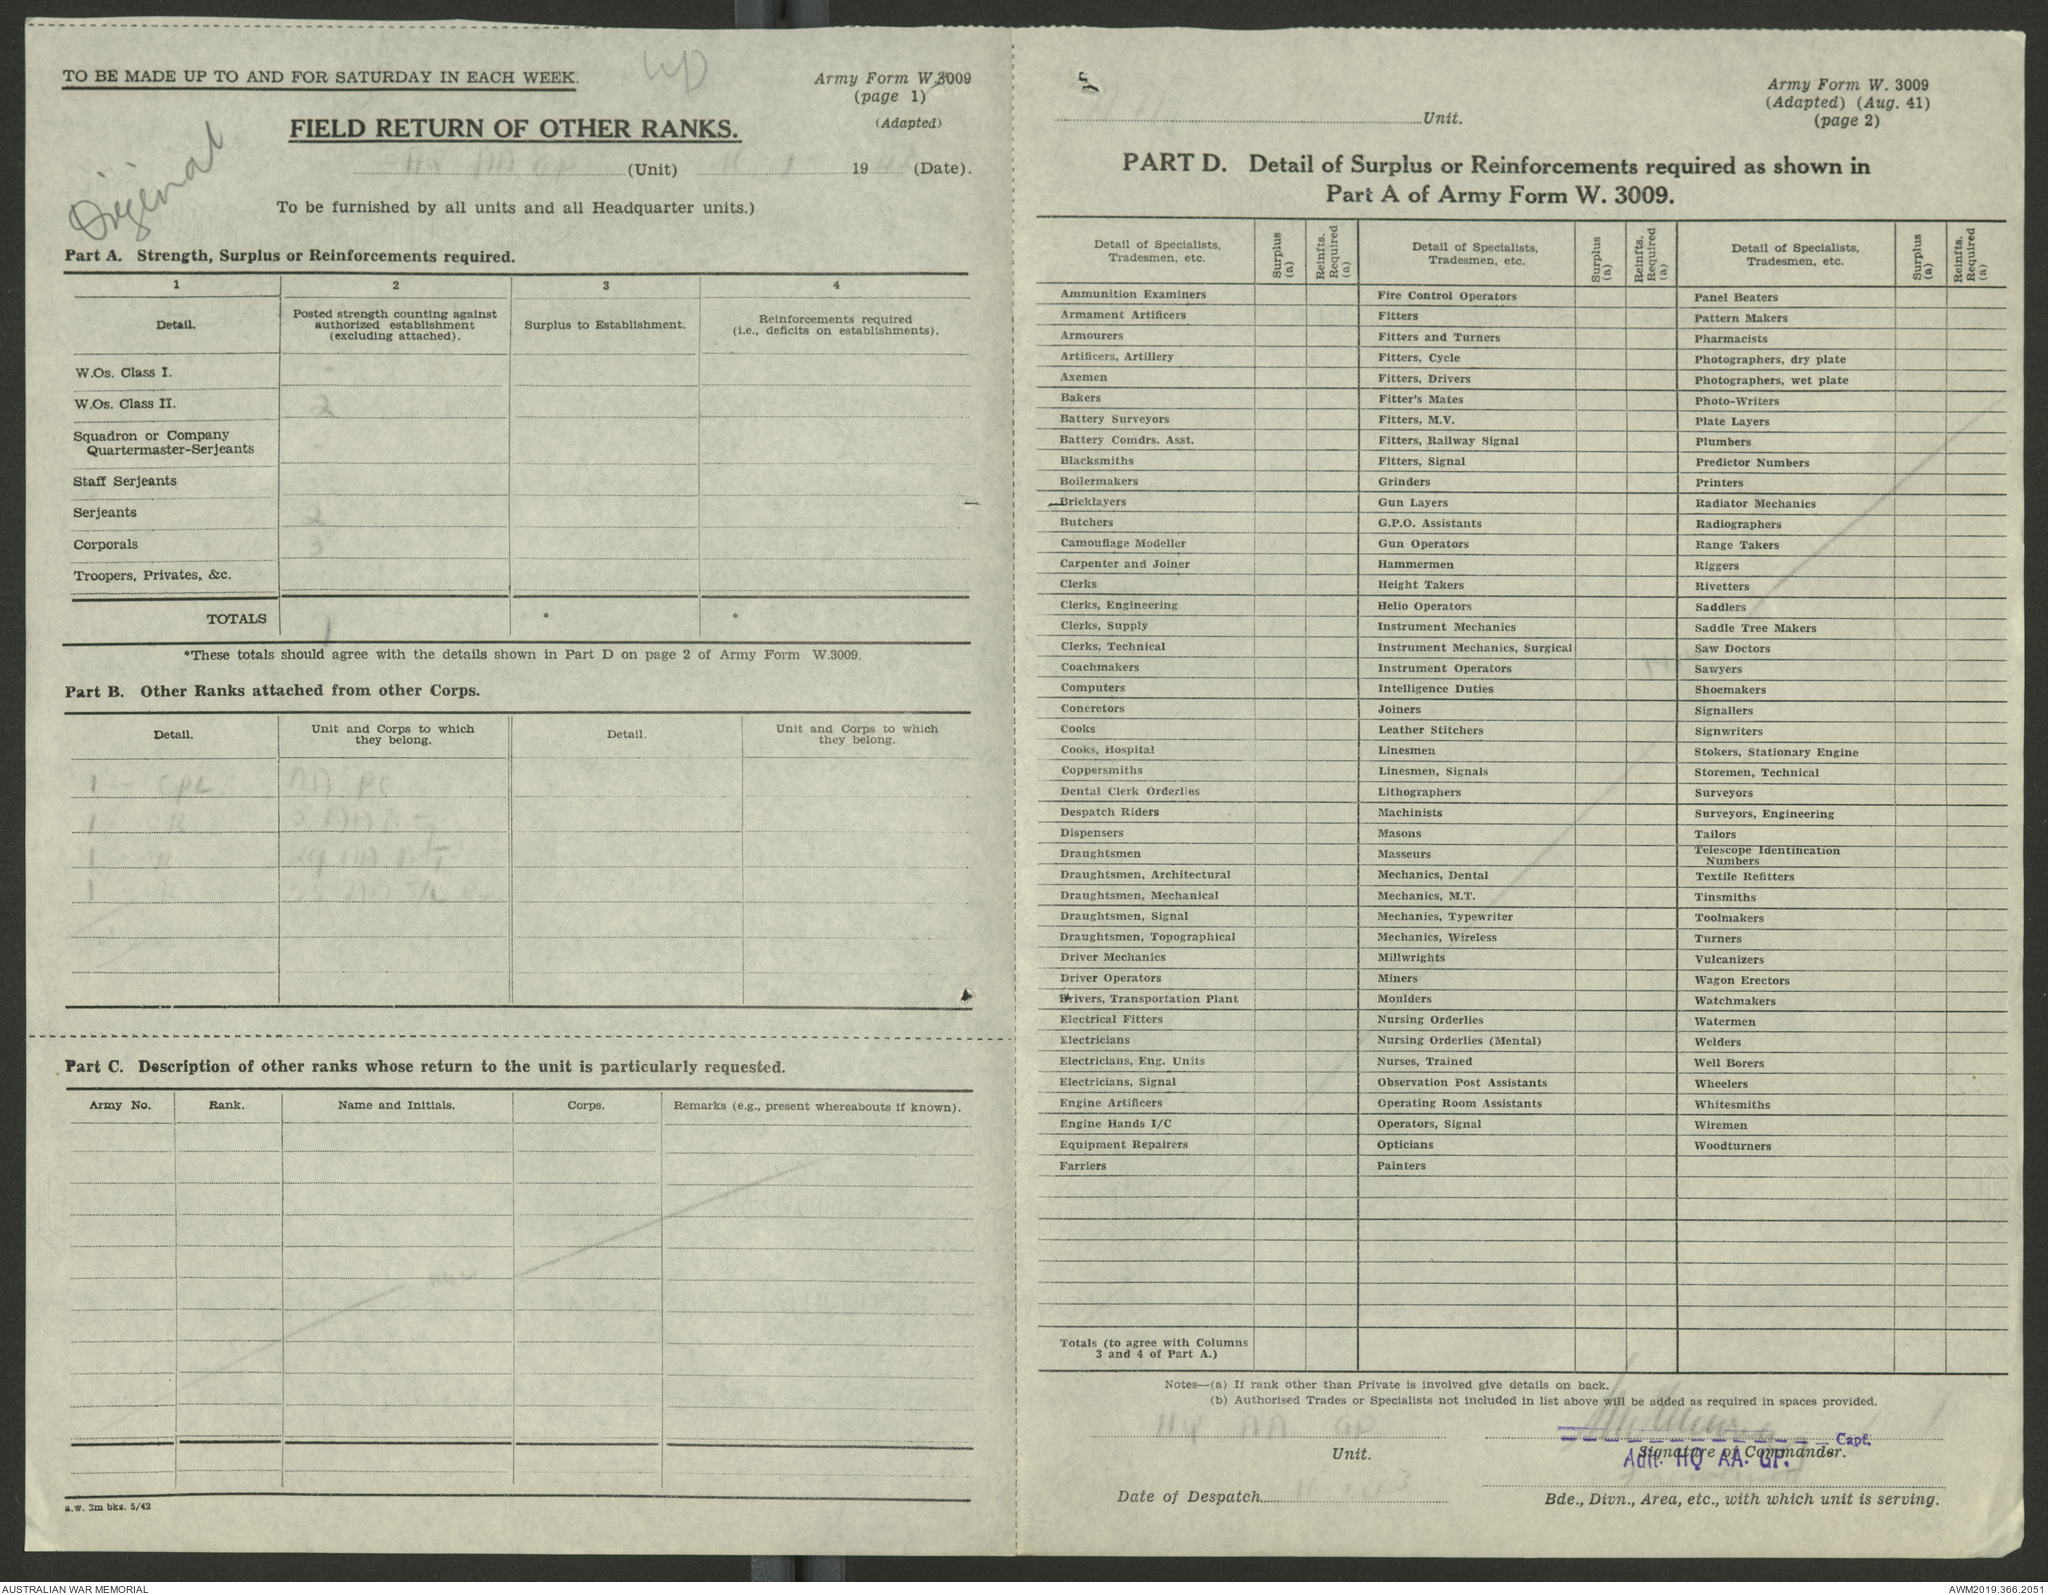 TO BE MADE UP TO AND FOR SATURDAY IN EACH WEEK.
Army Form W.3009
(page 1)
(Adapted)
Original
FIELD RETURN OF OTHER RANKS.
(Unit) 19 (Date).
To be furnished by all units and all Headquarter units.)
Part A. Strength, Surplus or Reinforcements required.
1 2 3 4
Detail.
Posted strength counting against
authorized establishment
(excluding attached).
Surplus to Establishment.
Reinforcements required
(i.e., deficits on establishments).
W.Os. Class I.
W.Os. Class II. 2
Squadron or Company
Quartermaster-Serjeants
Staff Serjeants
Serjeants 2
Corporals 3
Troopers, Privates, &c.
TOTALS * *
*These totals should agree with the details shown in Part D on page 2 of Army Form W.3009.
Part B. Other Ranks attached from other Corps.
Detail.
Unit and Corps to which
they belong.
Detail.
Unit and Corps to which
they belong.
1 - Cpl
1
1
1
Part C. Description of other ranks whose return to the unit is particularly requested.
Army No. Rank. Name and Initials. Corps. Remarks (e.g., present whereabouts if known).
a.w. 3m bks. 5/42
Army Form W. 3009
(Adapted) (Aug. 41)
(page 2)
Unit.
PART D. Detail of Surplus or Reinforcements required as shown in
Part A of Army Form W. 3009.
Detail of Specialists,
Tradesmen, etc.
Surplus
(a)
Reinfts.
Required
(a)
Detail of Specialists,
Tradesmen, etc.
Surplus
(a)
Reinfts.
Required
(a)
Detail of Specialists,
Tradesmen, etc.
Surplus
(a)
Reinfts.
Required
(a)
Ammunition Examiners
Armament Artificers
Armourers
Artificers, Artillery
Axemen
Bakers
Battery Surveyors
Battery Comdrs. Asst.
Blacksmiths
Boilermakers
Bricklayers
Butchers
Camouflage Modeller
Carpenter and Joiner
Clerks
Clerks, Engineering
Clerks, Supply
Clerks, Technical
Coachmakers
Computers
Concretors
Cooks
Cooks, Hospital
Coppersmiths
Dental Clerk Orderlies
Despatch Riders
Dispensers
Draughtsmen
Draughtsmen, Architectural
Draughtsmen, Mechanical
Draughtsmen, Signal
Draughtsmen, Topographical
Driver Mechanics
Driver Operators
Drivers, Transportation Plant
Electrical Fitters
Electricians
Electricians, Eng. Units
Electricians, Signal
Engine Artificers
Engine Hands I/C
Equipment Repairers
Farriers
Fire Control Operators
Fitters
Fitters and Turners
Fitters, Cycle
Fitters, Drivers
Fitter's Mates
Fitters, M.V.
Fitters, Railway Signal
Fitters, Signal
Grinders
Gun Layers
G.P.O. Assistants
Gun Operators
Hammermen
Height Takers
Helio Operators
Instrument Mechanics
Instrument Mechanics, Surgical
Instrument Operators
Intelligence Duties
Joiners
Leather Stitchers
Linesmen
Linesmen, Signals
Lithographers
Machinists
Masons
Masseurs
Mechanics, Dental
Mechanics, M.T.
Mechanics, Typewriter
Mechanics, Wireless
Millwrights
Miners
Moulders
Nursing Orderlies
Nursing Orderlies (Mental)
Nurses, Trained
Observation Post Assistants
Operating Room Assistants
Operators, Signal
Opticians
Painters
Panel Beaters
Pattern Makers
Pharmacists
Photographers, dry plate
Photographers, wet plate
Photo-Writers
Plate Layers
Plumbers
Predictor Numbers
Printers
Radiator Mechanics
Radiographers
Range Takers
Riggers
Rivetters
Saddlers
Saddle Tree Makers
Saw Doctors
Sawyers
Shoemakers
Signallers
Signwriters
Stokers, Stationary Engine
Storemen, Technical
Surveyors
Surveyors, Engineering
Tailors
Telescope Identification
Numbers
Textile Refitters
Tinsmiths
Toolmakers
Turners
Vulcanizers
Wagon Erectors
Watchmakers
Watermen
Welders
Well Borers
Wheelers
Whitesmiths
Wiremen
Woodturners
Totals (to agree with Columns
3 and 4 of Part A.)
Notes—(a) If rank other than Private is involved give details on back.
(b) Authorised Trades or Specialists not included in list above will be added as required in spaces provided.
HQ AA GP
Unit.
Capt.
Signature of Commander.
Adjt. HQ AA. GP.
Date of Despatch
Bde., Divn., Area, etc., with which unit is serving.
AUSTRALIAN WAR MEMORIAL
AWM2019.366.2051